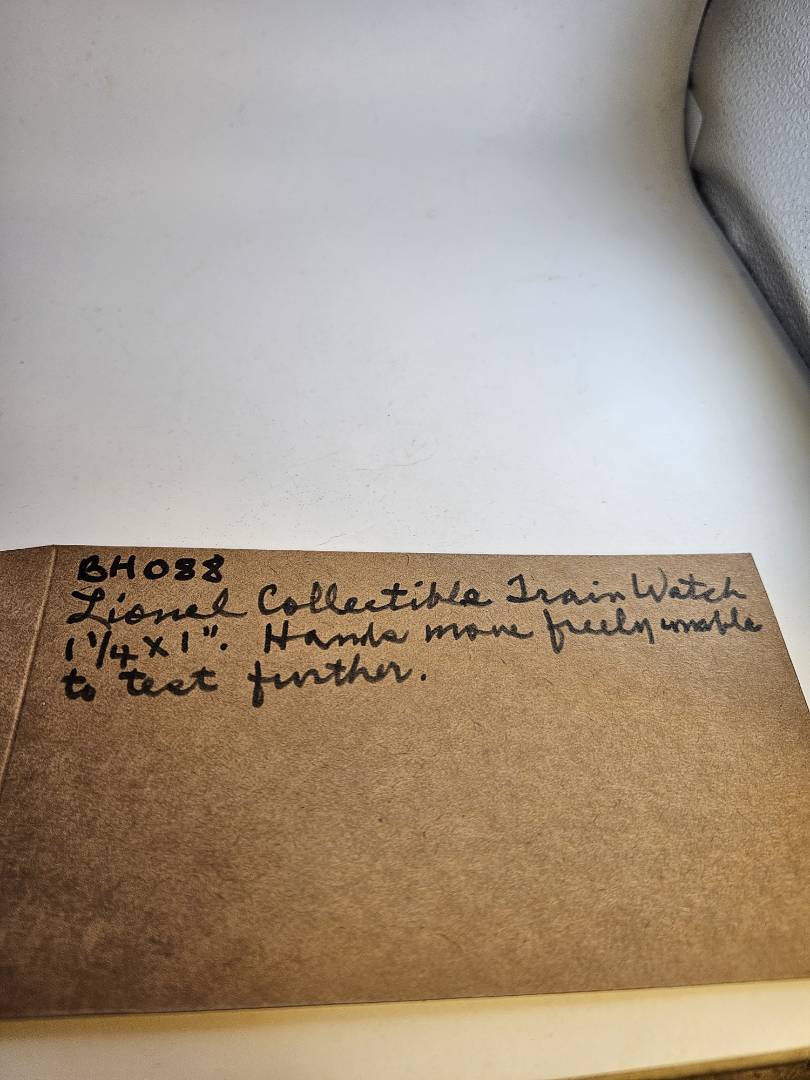 BH088
Lionel Collectible Train Watch
1 1/4 x 1". Hands move freely unable
to test further.